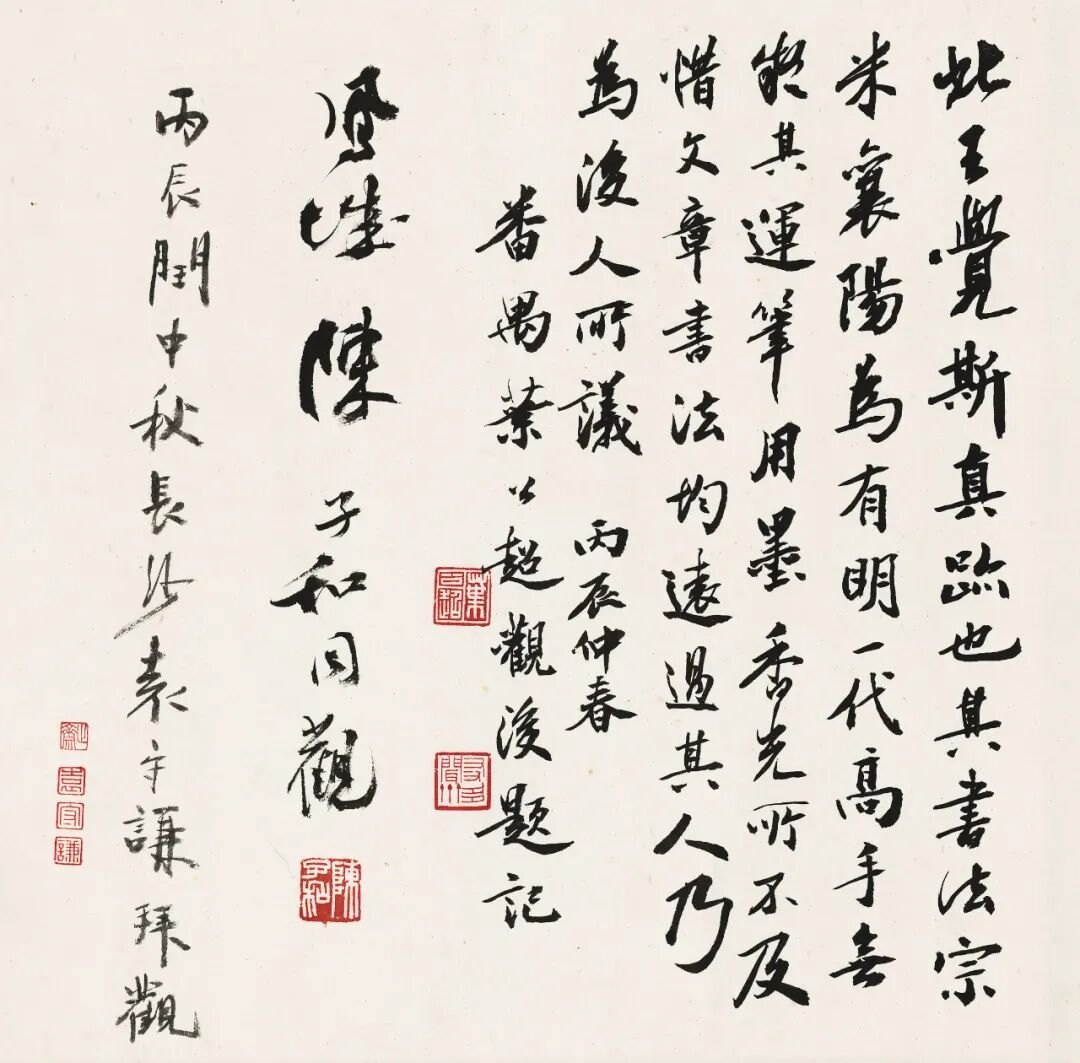 此王覺斯真跡也其書法宗
米襄陽為有明一代高手無
疑其運筆用墨香光所不及
惜文章書法均遠過其人乃
為後人所議 丙辰仲春
番禺葉公超觀後題記
葉公超
鳳城陳子和同觀
陳子和
丙辰閏中秋長沙袁守謙拜觀
袁守謙